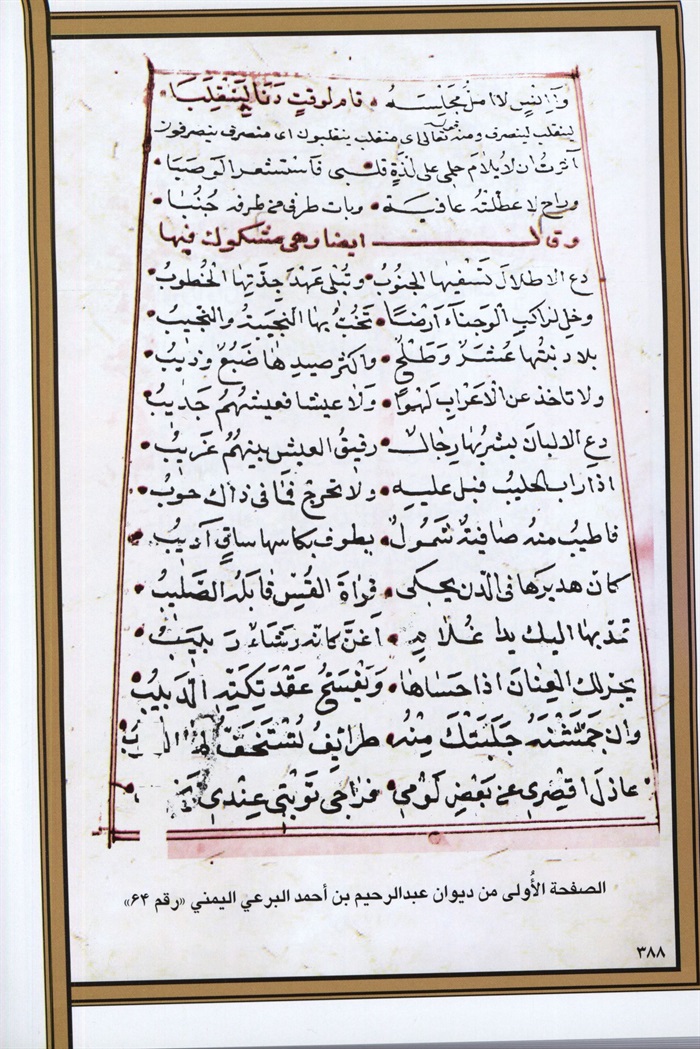 وآنس لا امل مجلسه • قام لوقت دنا لينقلبا
لينقلب لينصرف ومنه قوله تعالى اى منقلب ينقلبون اى منصرف ينصرفون
آثرت ان لا يلام حلمي على لذة قلبي فاستشعر الوصبا
وراح لا عطلته عافية • وبات طرفي من طرفه جنبا
وقال ايضا وهى مشكوك فيها
دع الاطلال تسفيها الجنوب • وتبلى عهد جدتها الخطوب
وخل لراكب الوجناء ارضا • تخب بها النجيبة والنجيب
بلاد نبتها عشر وطلح • واكثر صيدها ضبع وذيب
ولا تاخذ عن الاعراب لهوا • ولا عيشا فعيشهم جديب
دع الالبان يشربها رجال • رقيق العيش بينهم غريب
اذا راب الحليب فبل عليه • ولا تحرج فما فى ذاك حوب
فاطيب منه صافية شمول • يطوف بكاسها ساقي اديب
كان هديرها فى الدن يحكى • قراة القس قابله الصليب
تمد بها اليك يدا غلام • اغن كانه رشاء ربيب
يجر لك العنان اذا حساها • ويفتح عقد تكته الدبيب
وان جمشته جلبتك منه • طرايف تستخف
عاذل اقصرى عن بعض لومي • فراجى توبتى عندى
الصفحة الأولى من ديوان عبدالرحيم بن أحمد البرعي اليمني «رقم ٦٤»
٣٨٨